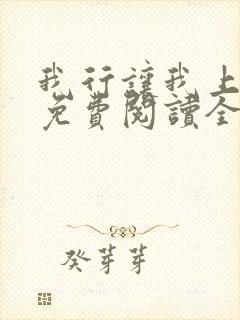 我行讓我上
免費閱讀全
癸芽芽